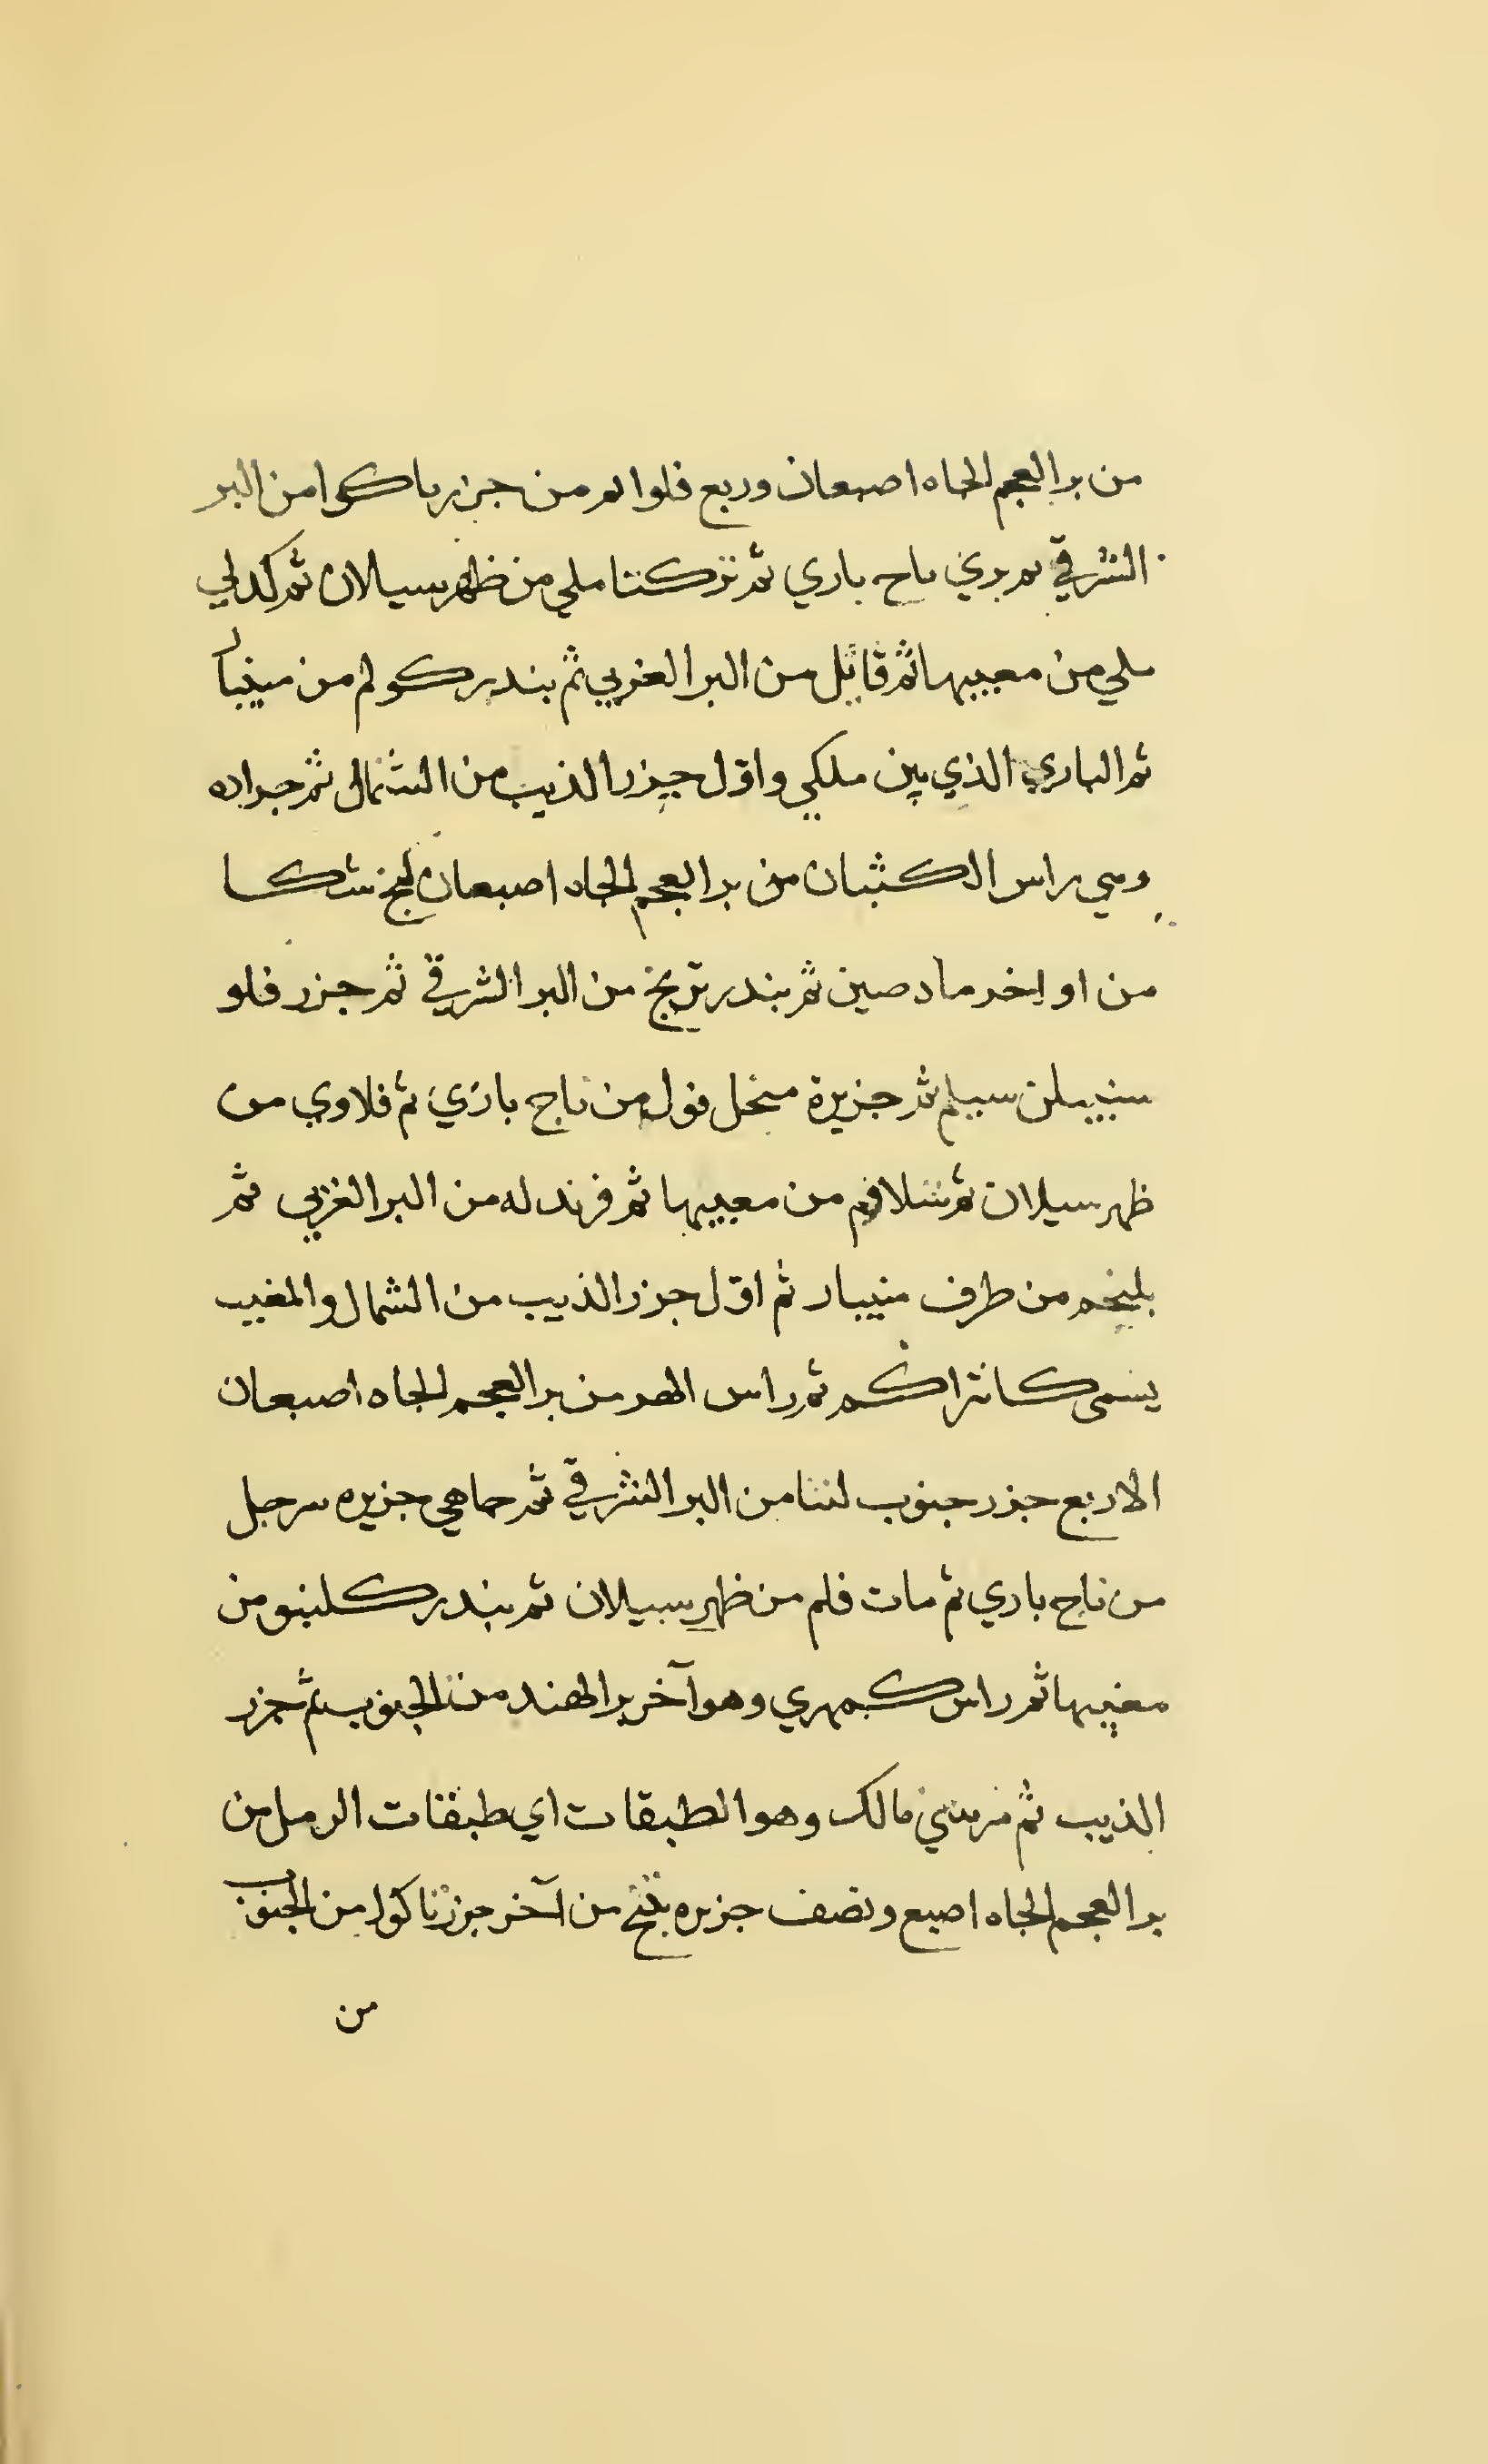 من بر العجم الجاه اصبعان وربع فلوالم من جزر ناكوا من البر
الشرقي ثم بري ناج باري ثم تركنتا ملي من ظهر سيلان ثم كدلي
ملي من مغيبها ثم قايل من البر الغربي ثم بندر كولم من منيبار
ثم الباري الذي بين ملكي واوّل جزر الذيب من الشمال ثم جراده
وهي راس الكثبان من بر العجم الجاه اصبعان
من اواخر ما دصين ثم بندر من البر الشرقي ثم جزر فلو
سنبيلن سيام ثم جزيرة منخل فول من ناج باري ثم فلاوي من
ظهر سيلان ثم شلافم من مغيبها ثم فرندله من البر الغربي ثم
بلينجم من طرف منيبار ثم اوّل جزر الذيب من الشمال والمغيب
يسمى ثم راس الهر من بر العجم الجاه اصبعان
الا ربع جزر جنوب لنتا من البر الشرقي ثم حماهي جزيره سرجل
من ناج باري ثم مات فلم من ظهر سيلان ثم بندر كلنبو من
مغيبها ثم راس كمهري وهو آخر بر الهند من الجنوب ثم جزر
الذيب ثم مالك وهو الطبقات اي طبقات الرمل من
بر العجم الجاه اصبع ونصف جزيره من آخر جزر ناكوا من الجنوب
من